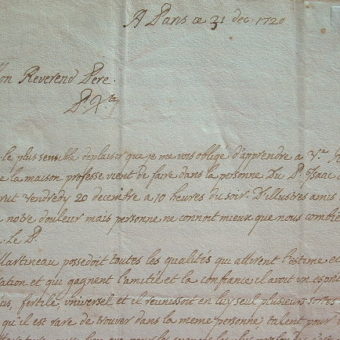 A Paris ce 31 dec. 1720
Mon Reverend Pere.
P. Xti
le plus sensible deplaisir que je me vois obligé d'apprendre a V.re
la maison professe vient de faire dans la personne Du P. Isaac
Vendredy 20 decembre a 10 heures du soir. D'illustres amis
a notre douleur mais personne ne connoit mieux que nous combien
Le P.
Martineau possedoit toutes les qualités qui attirent l'estime
et qui gagnent l'amitié et la confiance il avoit un esprit
fertile, universel et il reunissoit en luy seul plusieurs
qu'il est rare de trouver dans la meme personne talent pour